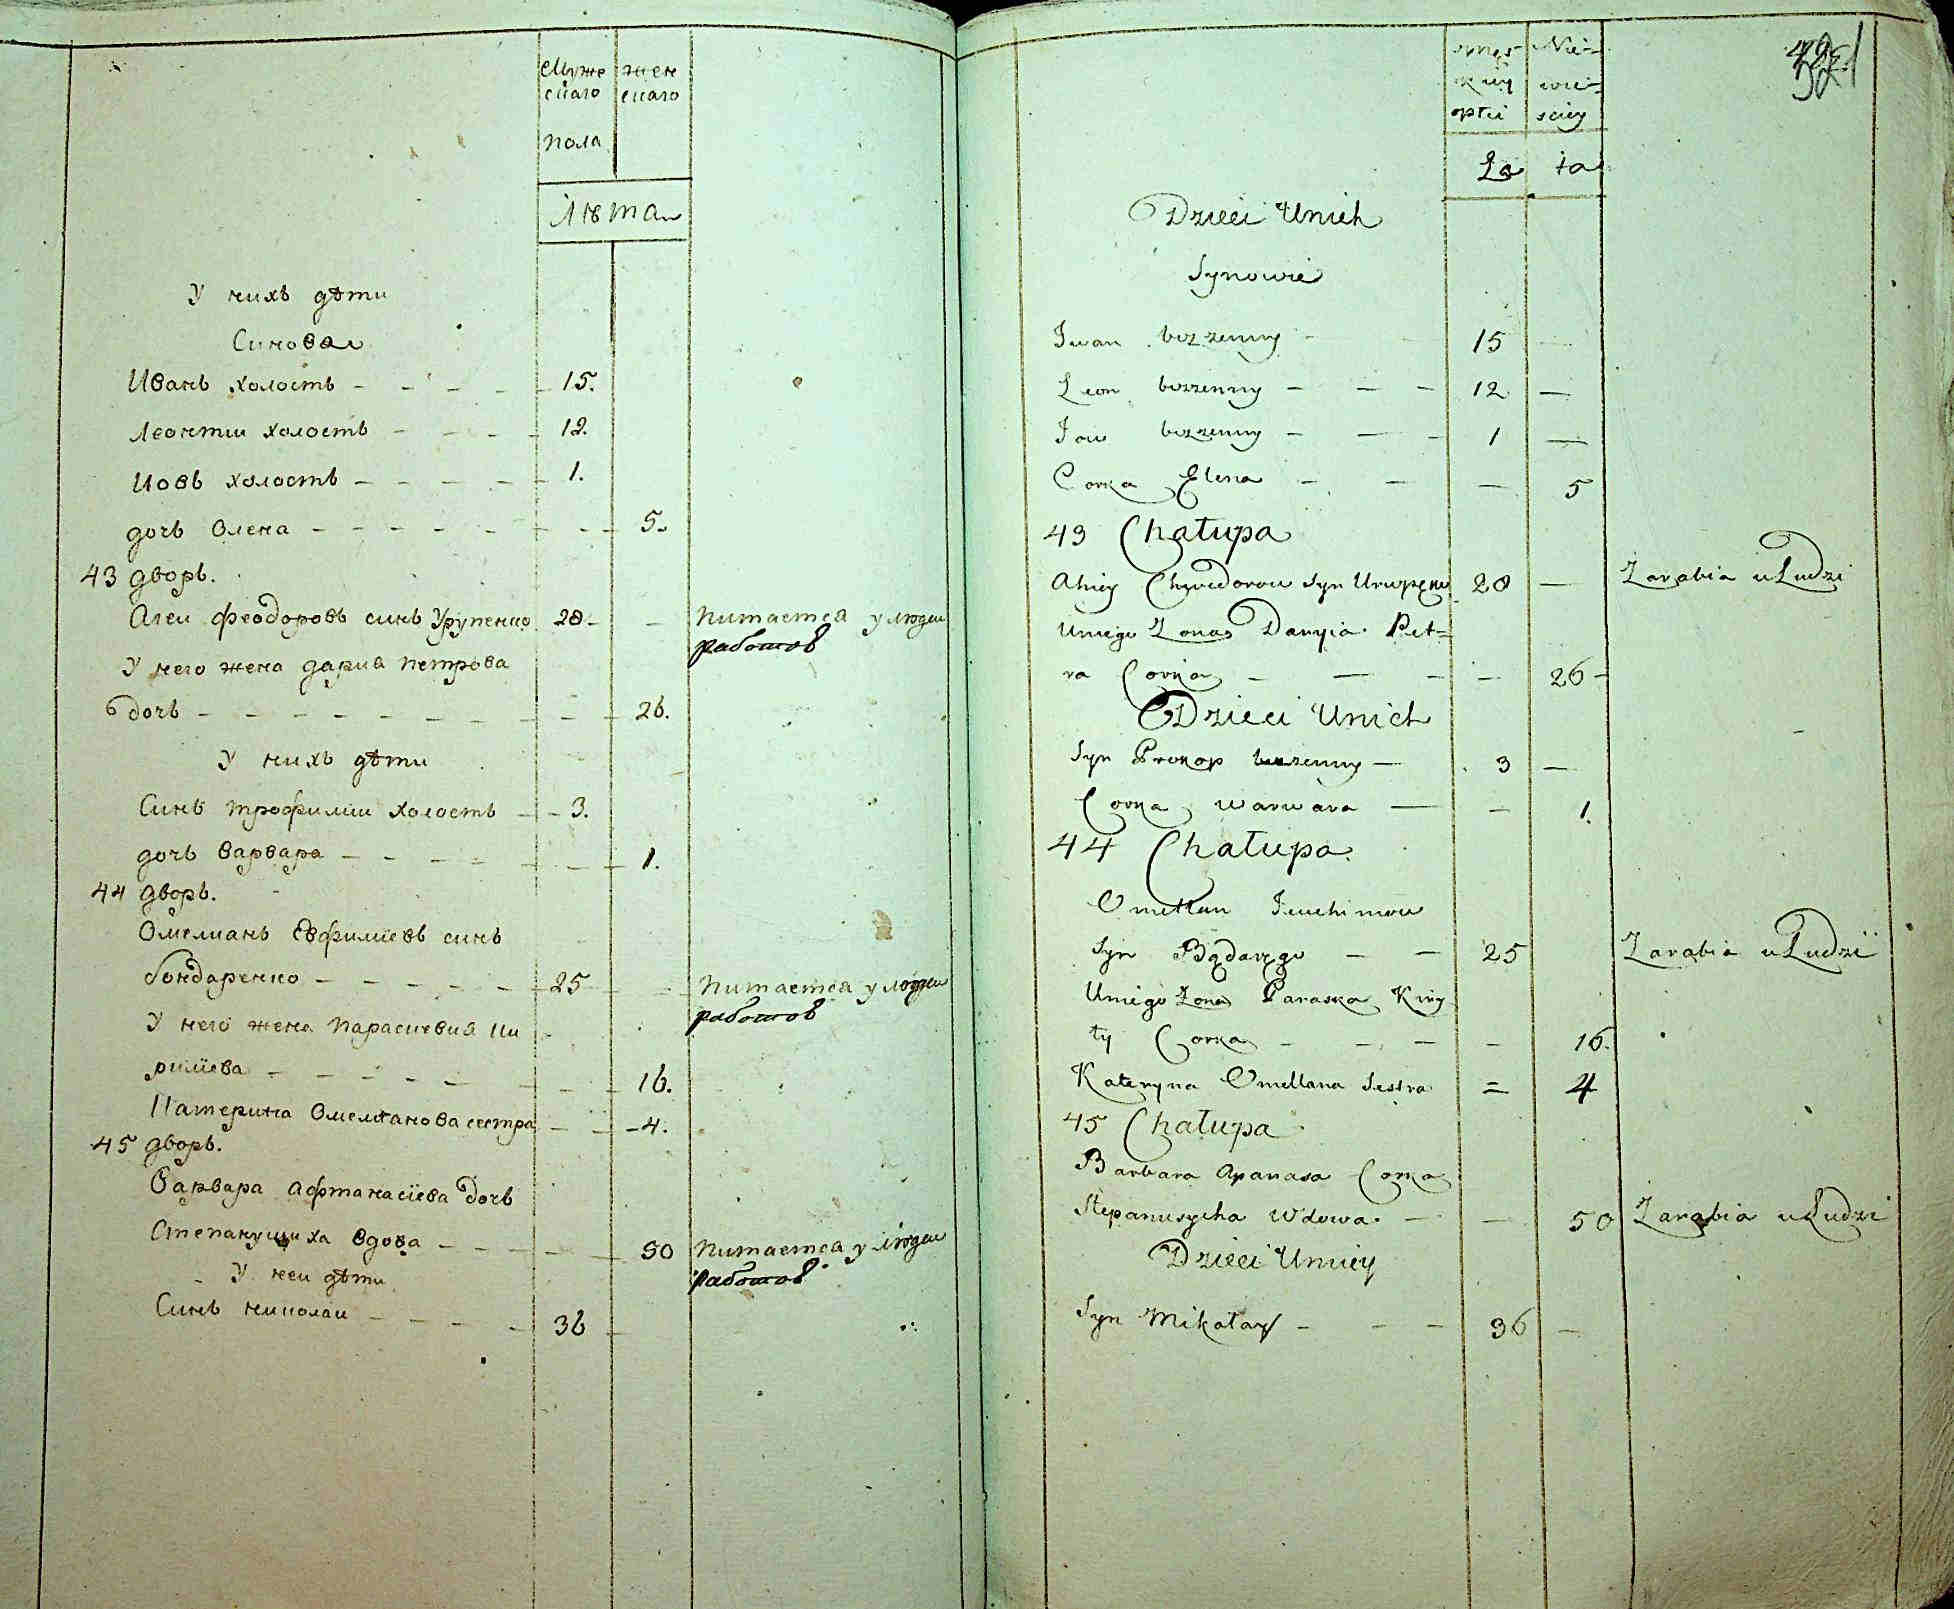 Муже
скаго
жен
скаго
пола
Лѣта
У нихъ дѣти
Синова
Иванъ холостъ 15.
Леонтии холостъ 12.
Иовъ холостъ 1.
дочь Олена 5.
43 дворъ.
Агеи Феодоровъ синъ Урупенко 28 питается у людеи
работов
У него жена дария петрова
дочь 26.
У нихъ дѣти
Синъ трофимии холостъ 3.
дочь варвара 1.
44 дворъ.
Омелианъ Евфимиевъ синъ
бондаренко 25 питается у людеи
работов
У него жена параскевия ки
рилиева 16.
Катерина Омелянова сестра 4.
45 дворъ.
Варвара афтанасиева дочь
Степанущиха вдова 50 питается у людеи
работов
У неи дѣти
Синъ николаи 36
męs-
kiey
płci
Nie-
wie-
sciey
La ta
Dzieci Unich
Synowie
Iwan bezzenny 15
Leon bezzenny 12
Iow bezzenny 1
Corka Elena 5
43 Chałupa
Ahiey Chwedorow Syn Urupęko 28 Zarabia u Ludzi
Uniego Zona Daryia Pet=
ra Corka 26
Dzieci Unich
Syn Prokop bezzenny 3
Corka warwara 1.
44 Chałupa
Omellan Iewchimow
Syn Bądaręgo 25 Zarabia u Ludzi
Uniego Zona Paraska Kiry
ły Corka 16.
Kateryna Omellana Sestra 4
45 Chałupa
Barbara apanasa Corka
Stepanusycha Wdowa 50 Zarabia u Ludzi
Dzieci Uniey
Syn Mikołay 36